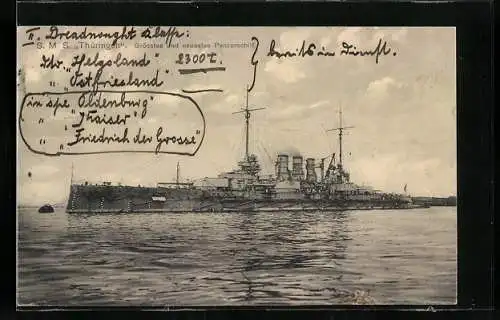 II. Dreadnought Klasse:
S. M. S. „Thüringen“. Grösstes und neuestes Panzerschiff
dto. „Helgoland“ 2300 t.
„ „Ostfriesland“
bereits in Dienst.
in spe „Oldenburg“
„ „Kaiser“
„ „Friedrich der Grosse“